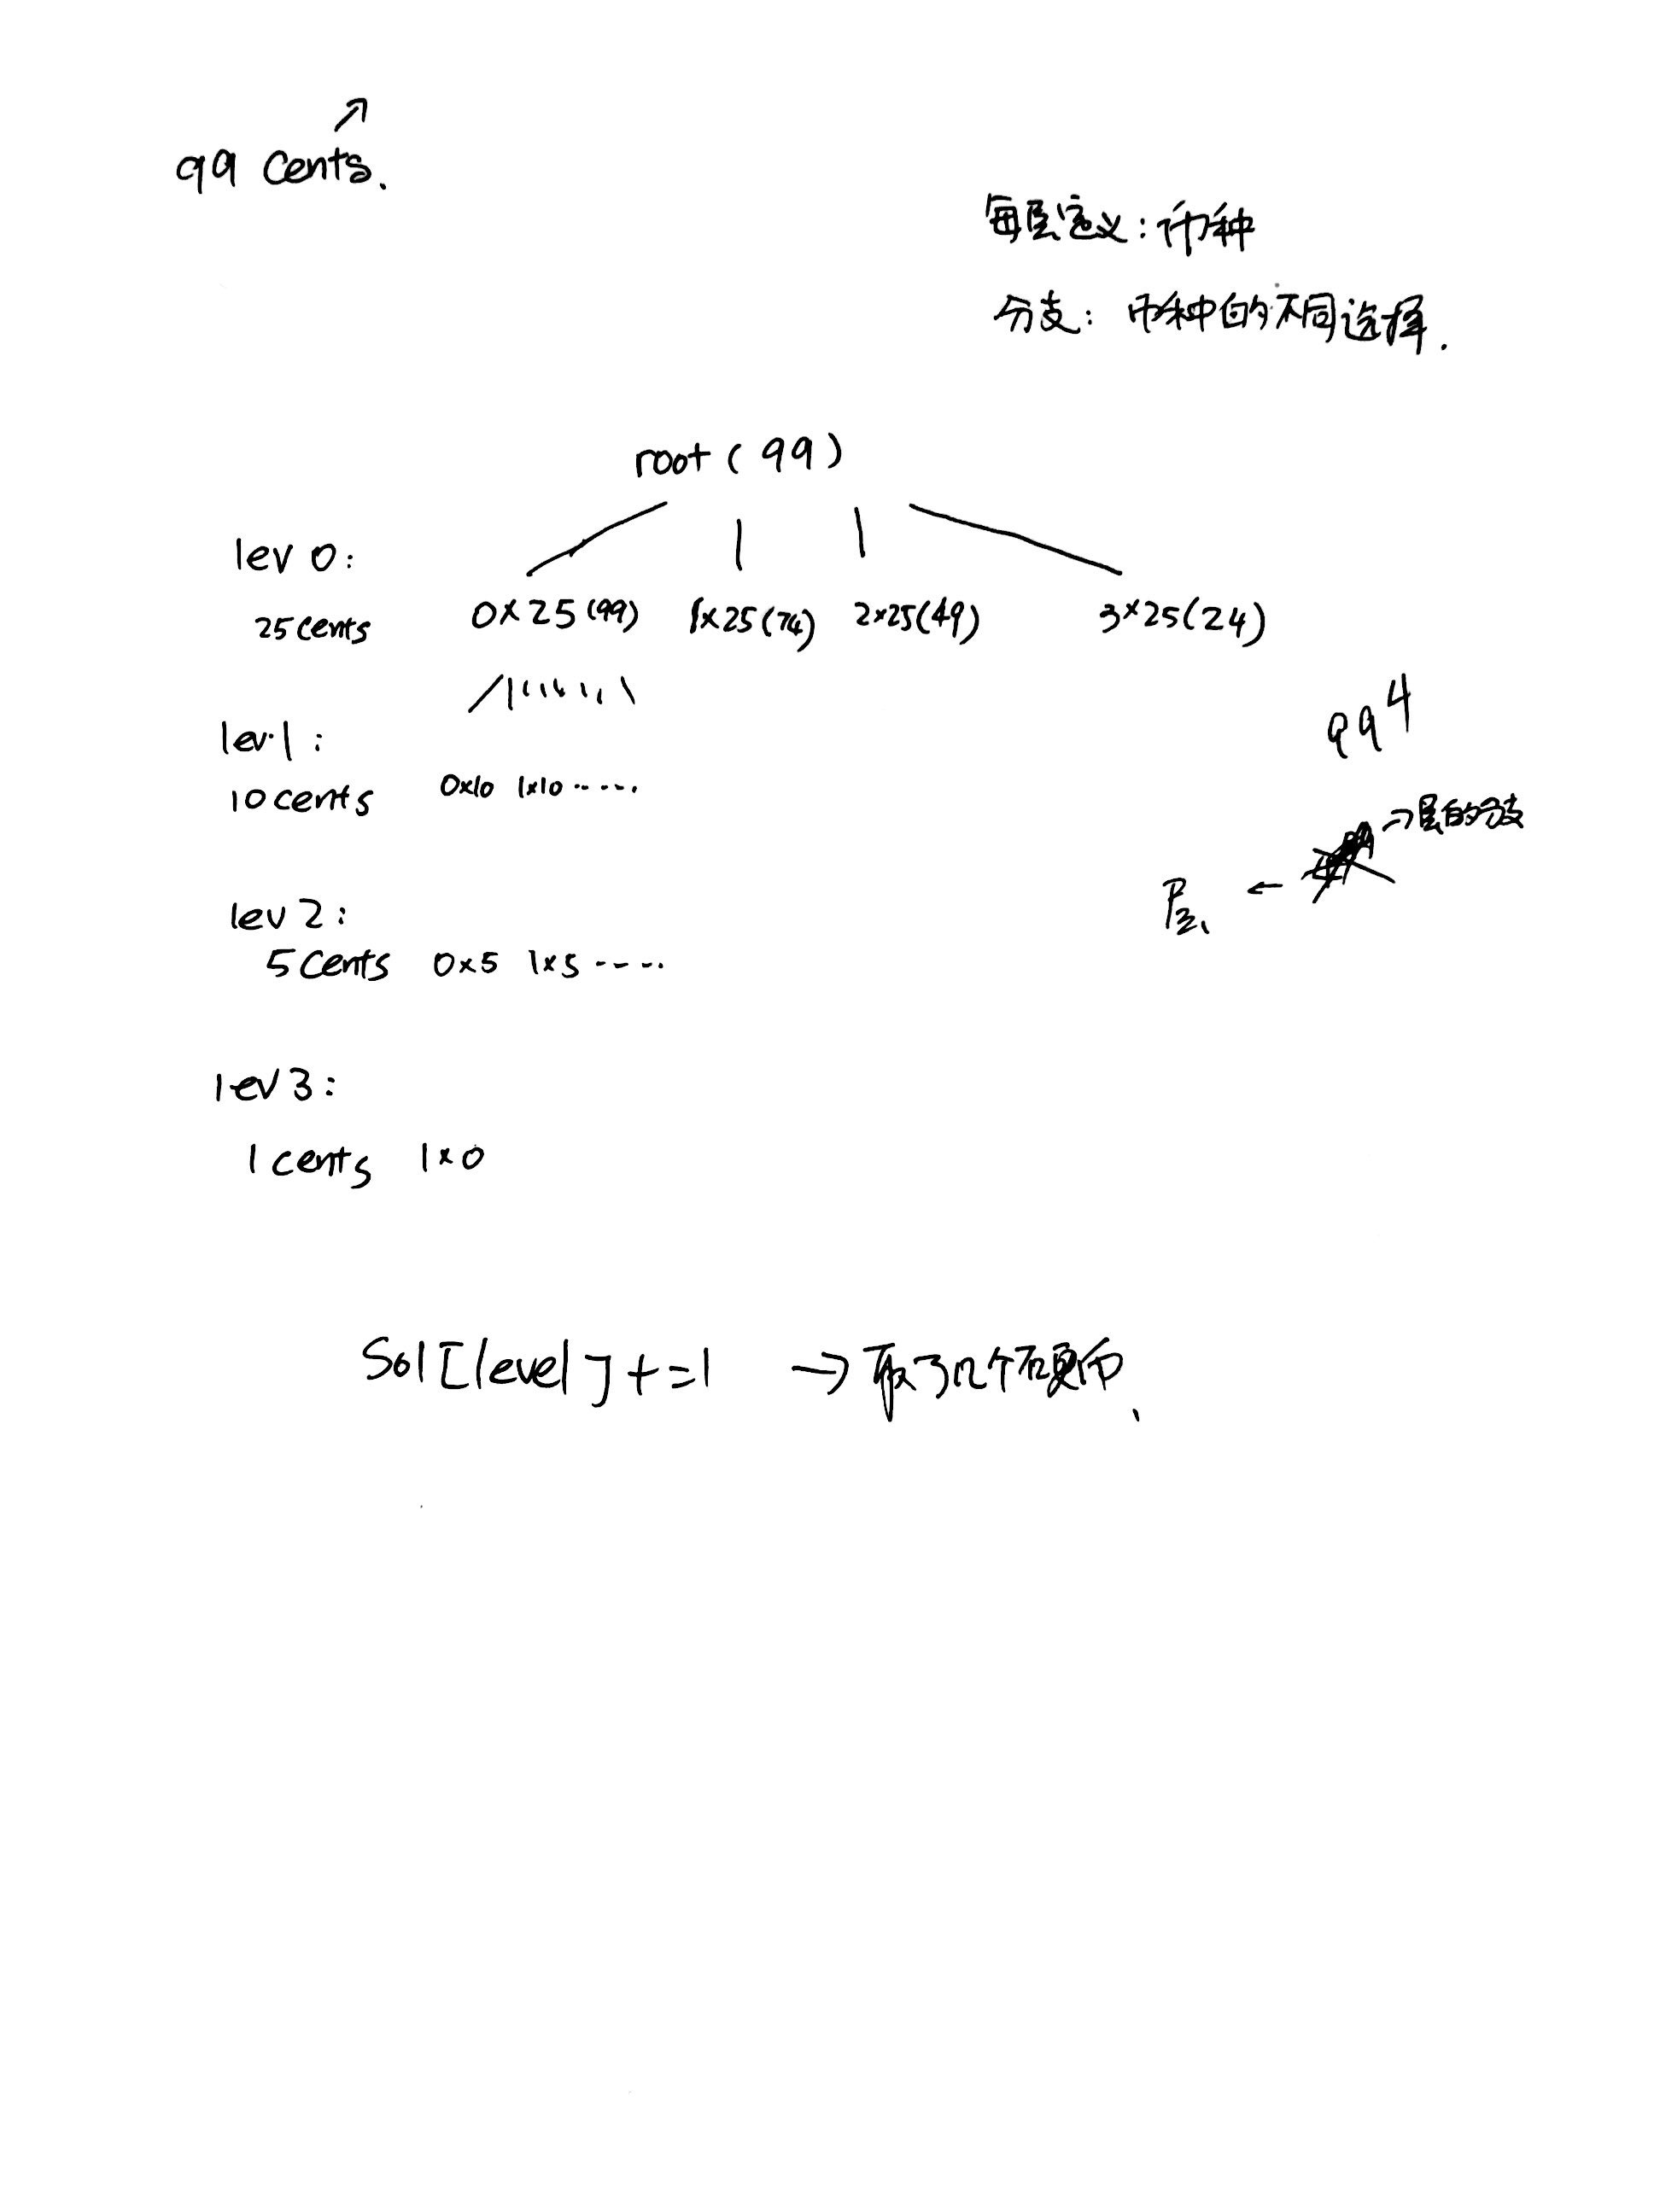 99 cents.
每层定义：币种
分支：币种的不同选择.
root (99)
lev 0:
25 cents 0×25 (99) 1×25 (74) 2×25 (49) 3×25 (24)
lev 1:
10 cents 0×10 1×10 .....
99⁴
层的分支
lev 2:
5 cents 0×5 1×5 ----.
lev 3:
1 cents 1×0
Sol [level] += 1 → 取了几个硬币